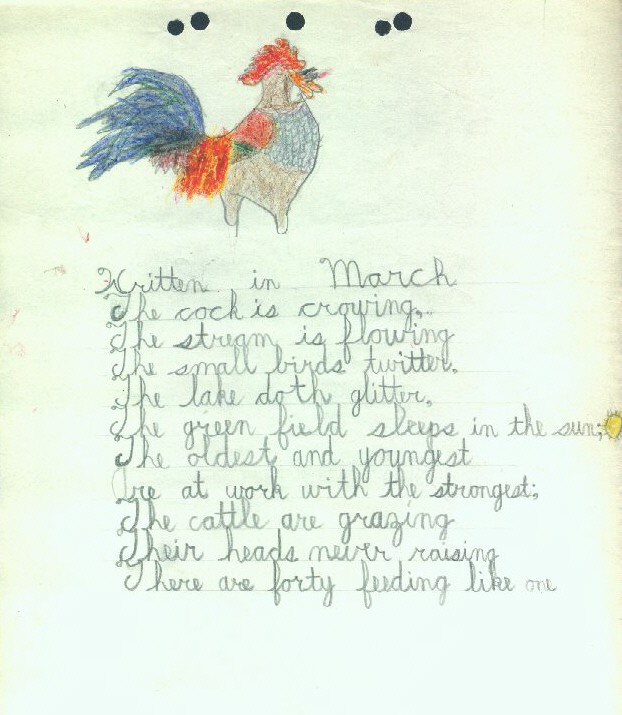 Written in March
The cock is crowing,
The stream is flowing
The small birds twitter.
The lake doth glitter.
The green field sleeps in the sun;
The oldest and youngest
Are at work with the strongest;
The cattle are grazing
Their heads never raising
There are forty feeding like one